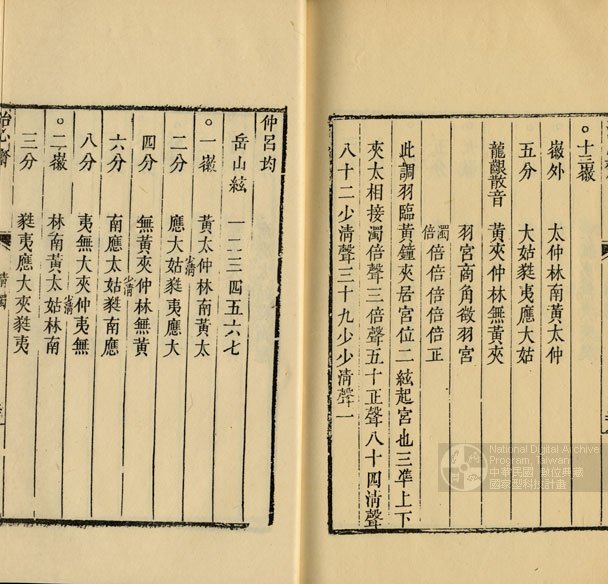 ○十三徽
徽外　太仲林南黄太仲
五分　大姑蕤夷應大姑
龍齦散音　黄夾仲林無黄夾
羽宮商角徵羽宮
濁倍倍倍倍倍倍正
此調羽臨黄鐘夾居宮位二絃起宮也三凖上下
夾太相接濁倍聲三倍聲五十正聲八十四淸聲
八十二少淸聲三十九少少淸聲一
仲呂均
岳山絃　一二三四五六七
○一徽　黄太仲林南黄太
少淸
二分　應大姑蕤夷應大
四分　無黄夾仲林無黄
少淸
六分　南應太姑蕤南應
八分　夷無大夾仲夷無
少淸
○二徽　林南黄太姑林南
三分　蕤夷應大夾蕤夷
怡心齋
National Digital Archives
Program, Taiwan
中華民國 數位典藏
國家型科技計畫